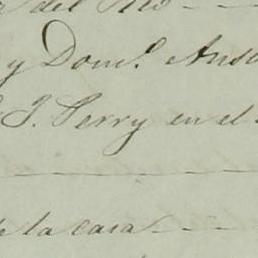 del Rio
y Dom.º Anso
J. Perry en el
de la casa